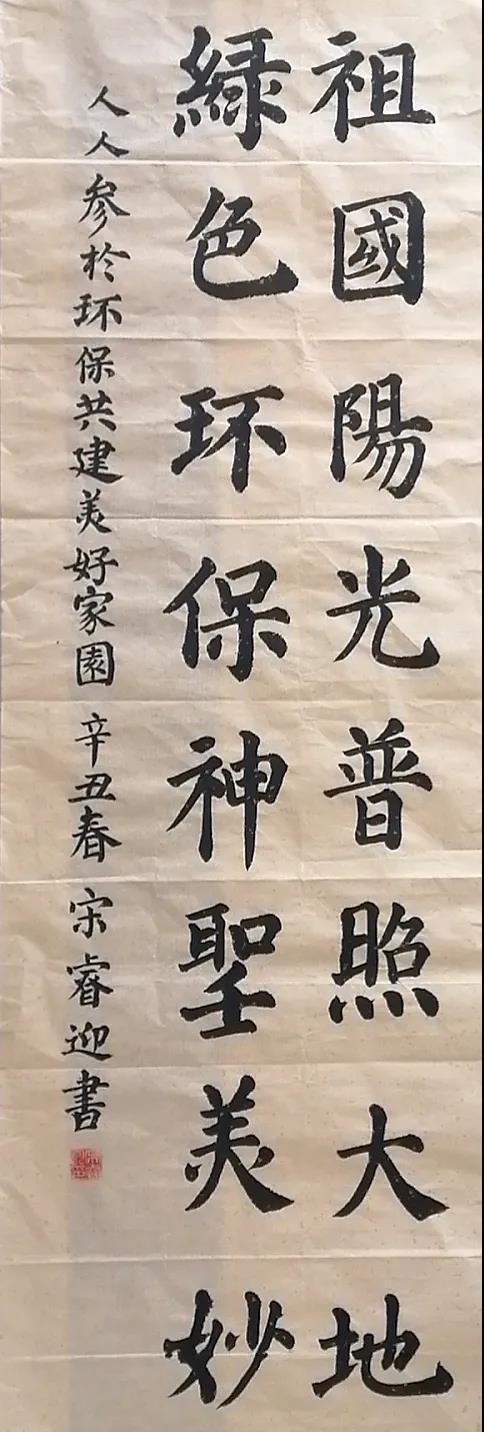 祖國陽光普照大地
綠色环保神聖美妙
人人参於环保共建美好家園 辛丑春 宋睿迎書